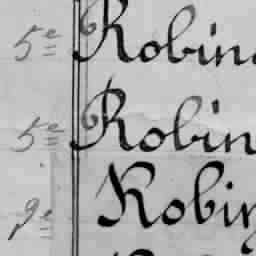 5e Robin
5e Robin
9e Robin